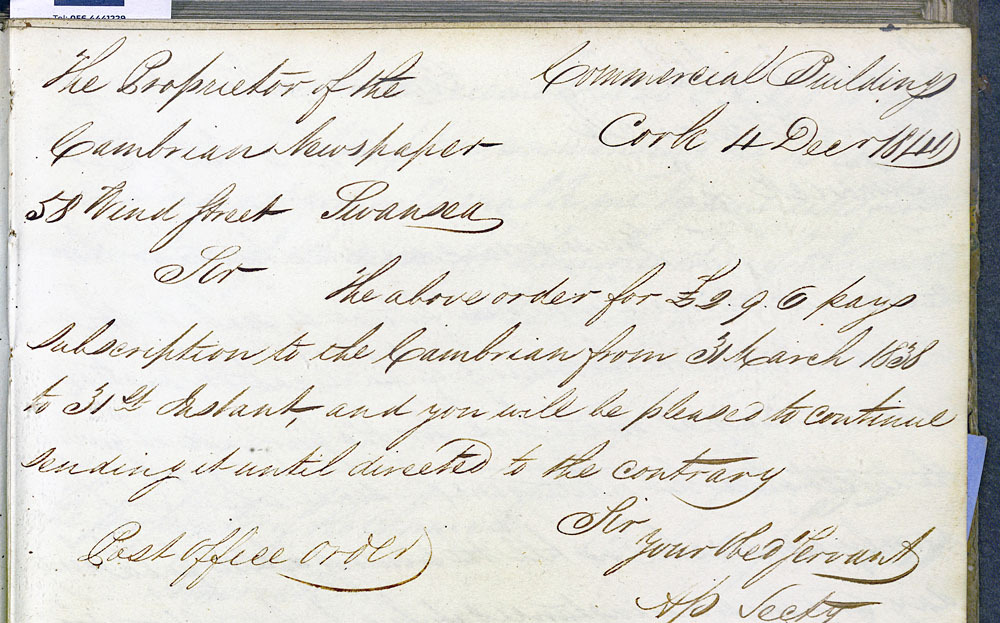 Tel: 056 4441329
The Proprietor of the
Cambrian Newspaper
58 Wind Street Swansea
Commercial Buildings
Cork 4 Decr 1840
Sir
The above order for £2.9.6 pays
subscription to the Cambrian from 31 March 1838
to 31st Instant, and you will be pleased to continue
sending it until directed to the contrary
Sir
Your Obed Servant
Secty
Post Office Order